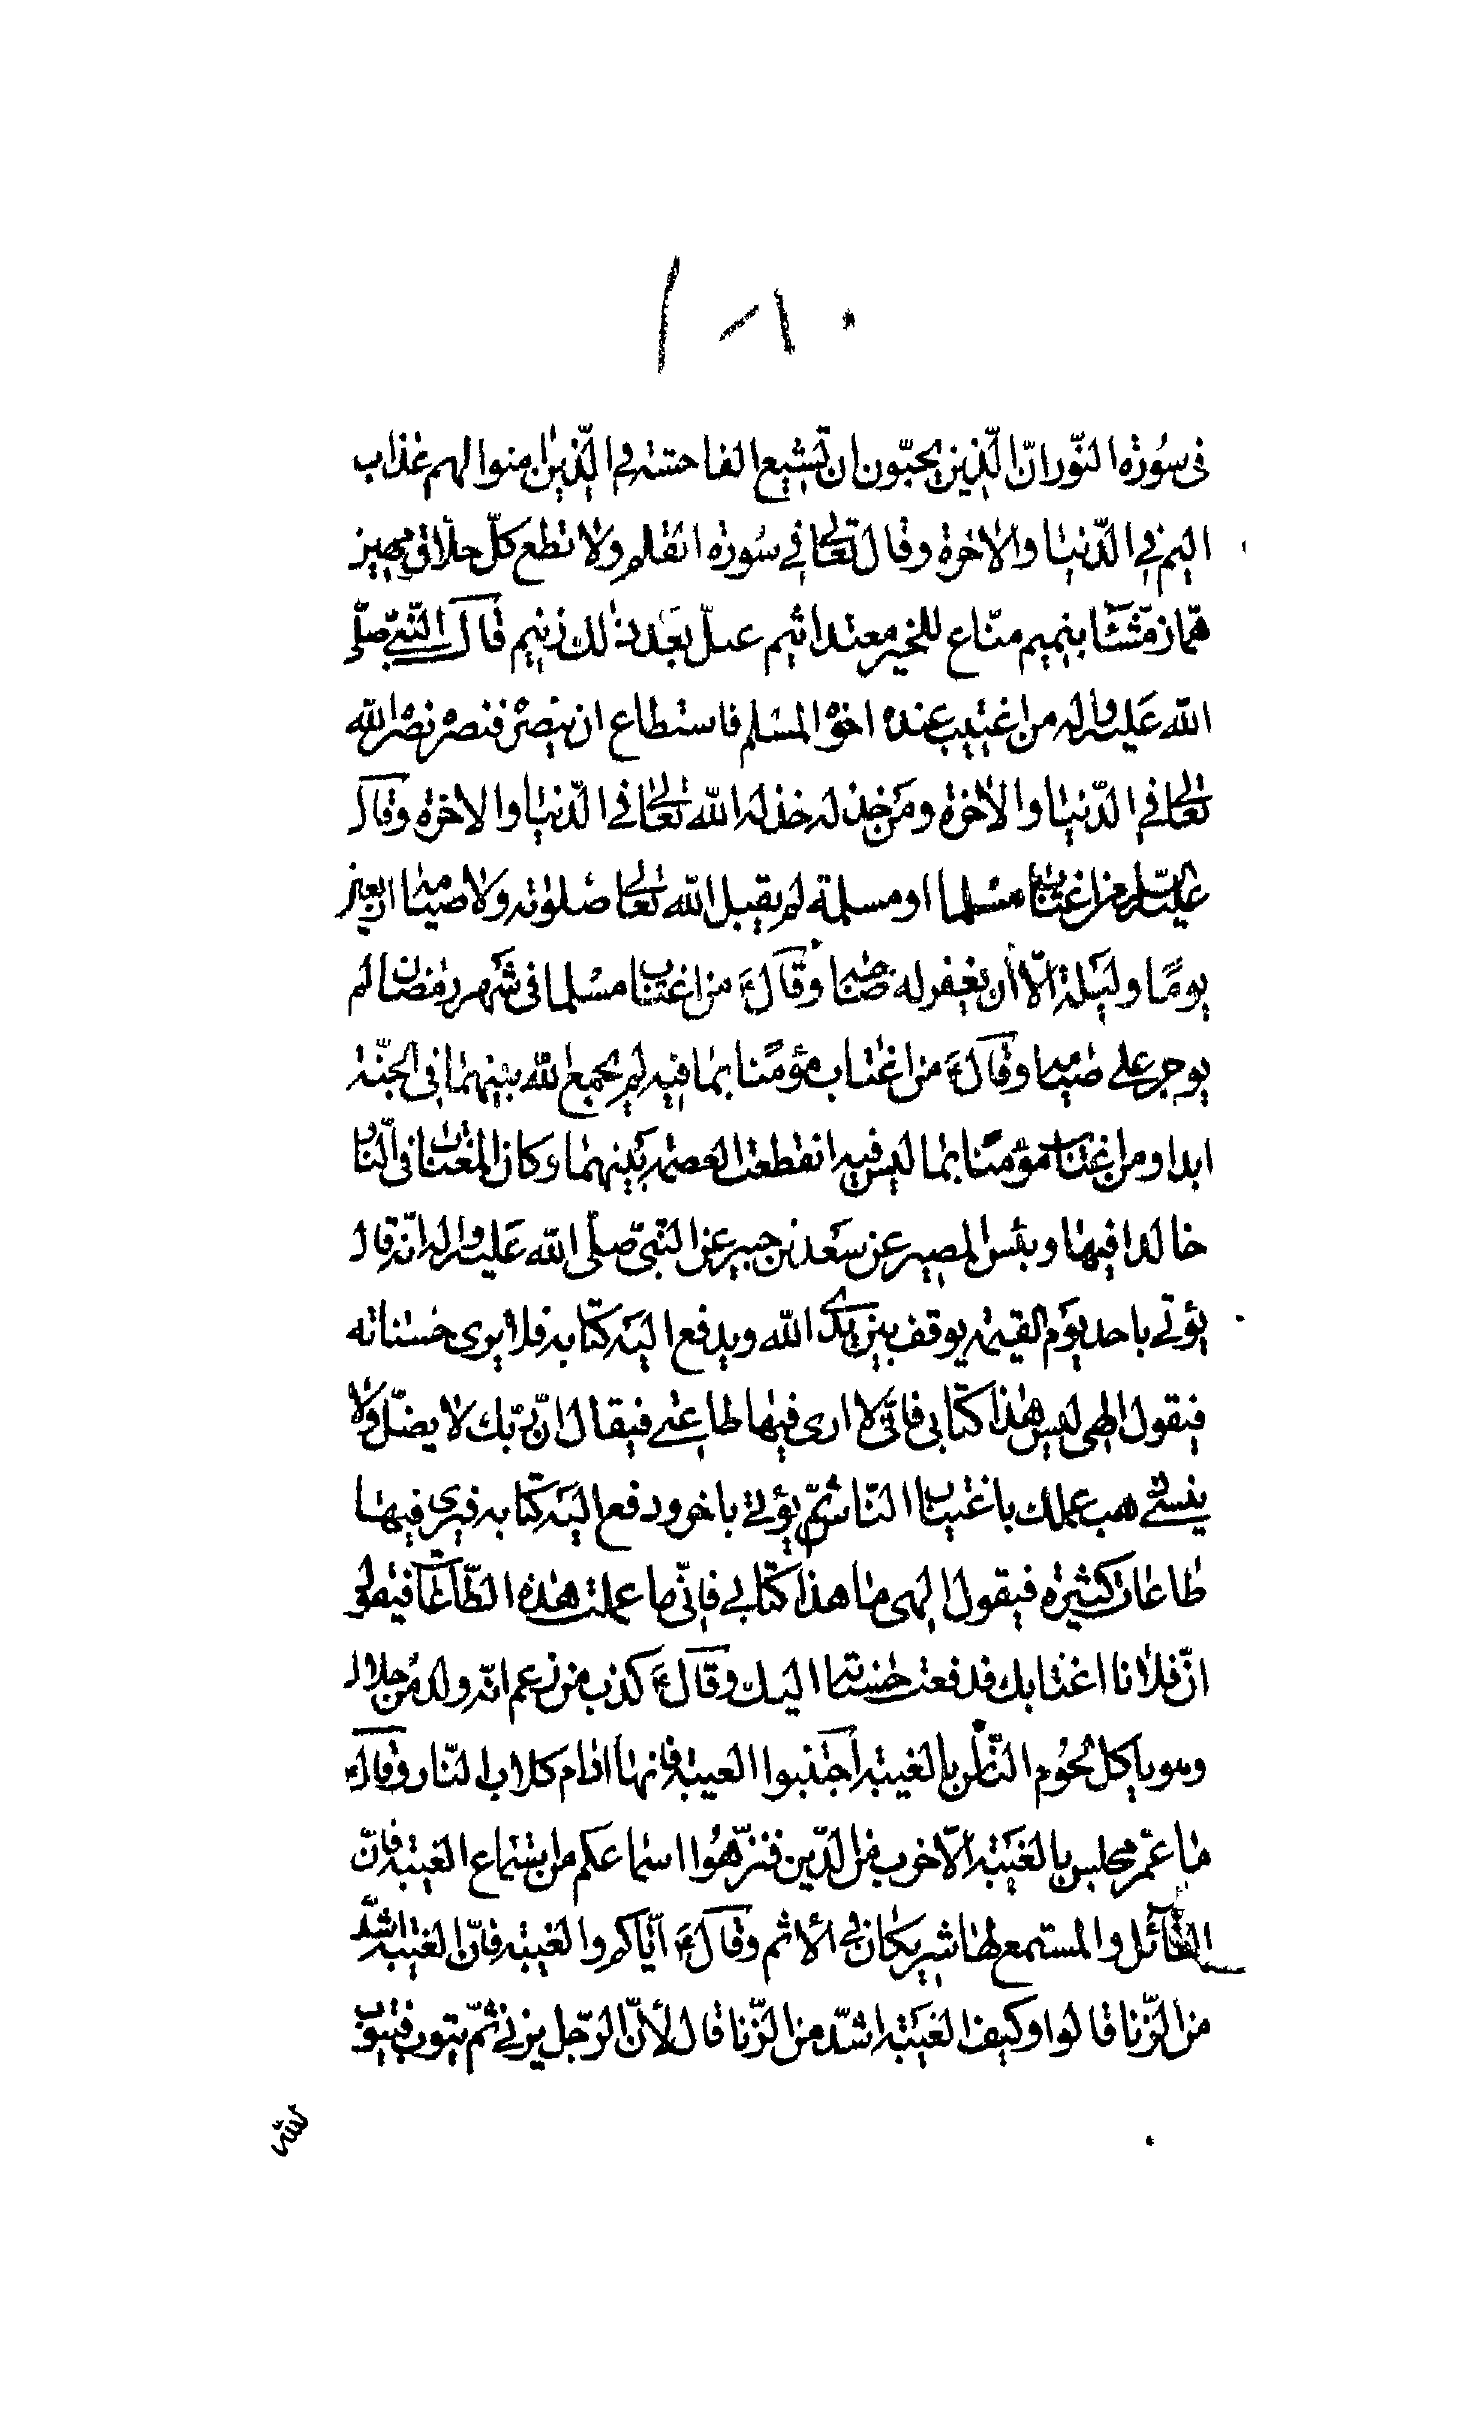 فى سورة النّور انّ الّذين يحبّون ان تشيع الفاحشة فى الّذين امنوا لهم عذاب
اليم فى الدّنيا والاخرة وقال تعالى فى سورة القلم ولا تطع كلّ حلّاف مهين
همّاز مشّاء بنميم منّاع للخير معتد اثيم عتلّ بعد ذلك زنيم قال النّبىّ صلّى
الله عليه واله من اغتيب عنده اخوه المسلم فاستطاع ان ينصره فنصره نصره الله
تعالى فى الدّنيا والاخرة ومن خذله خذله الله تعالى فى الدّنيا والاخرة وقال
عليه السّلام من اغتاب مسلما او مسلمة لم يقبل الله تعالى صلوته ولا صيامه اربعين
يوما وليلة الّا أن يغفر له صاحبه وقال ع من اغتاب مسلما فى شهر رمضان لم
يوجر على صيامه وقال ع من اغتاب مؤمنا بما فيه لم يجمع الله بينهما فى الجنّة
ابدا ومن اغتاب مؤمنا بما ليس فيه انقطعت العصمة بينهما وكان المغتاب فى النّار
خالدا فيها وبئس المصير عن سعد بن جبير عن النّبىّ صلّى الله عليه واله انّه قال
يؤتى باحد يوم القيمة يوقف بين يدى الله ويدفع اليه كتابه فلا يرى حسناته
فيقول الهى ليس هذا كتابى فانّى لا ارى فيها طاعتى فيقال انّ ربّك لا يضلّ ولا
ينسى ذهب عملك باغتياب النّاس ثمّ يؤتى باخر ودفع اليه كتابه فيرى فيها
طاعات كثيرة فيقول الهى ما هذا كتابى فانّى ما عملت هذه الطّاعات فيقول
انّ فلانا اغتابك فدفعت حسناته اليك وقال ع كذب من زعم انّه ولد من حلال
وهو ياكل لحوم النّاس بالغيبة اجتنبوا الغيبة فانها ادام كلاب النّار وقال ع
ما عمّر مجلس بالغيبة الّا خرب من الدّين فنزّهوا اسماعكم من استماع الغيبة فانّ
القائل والمستمع لها شريكان فى الأثم وقال ع ايّاكم والغيبة فانّ الغيبة اشدّ
من الزّنا قالوا وكيف الغيبة اشدّ من الزّنا قال لأنّ الرّجل يزنى ثمّ يتوب فيتوب